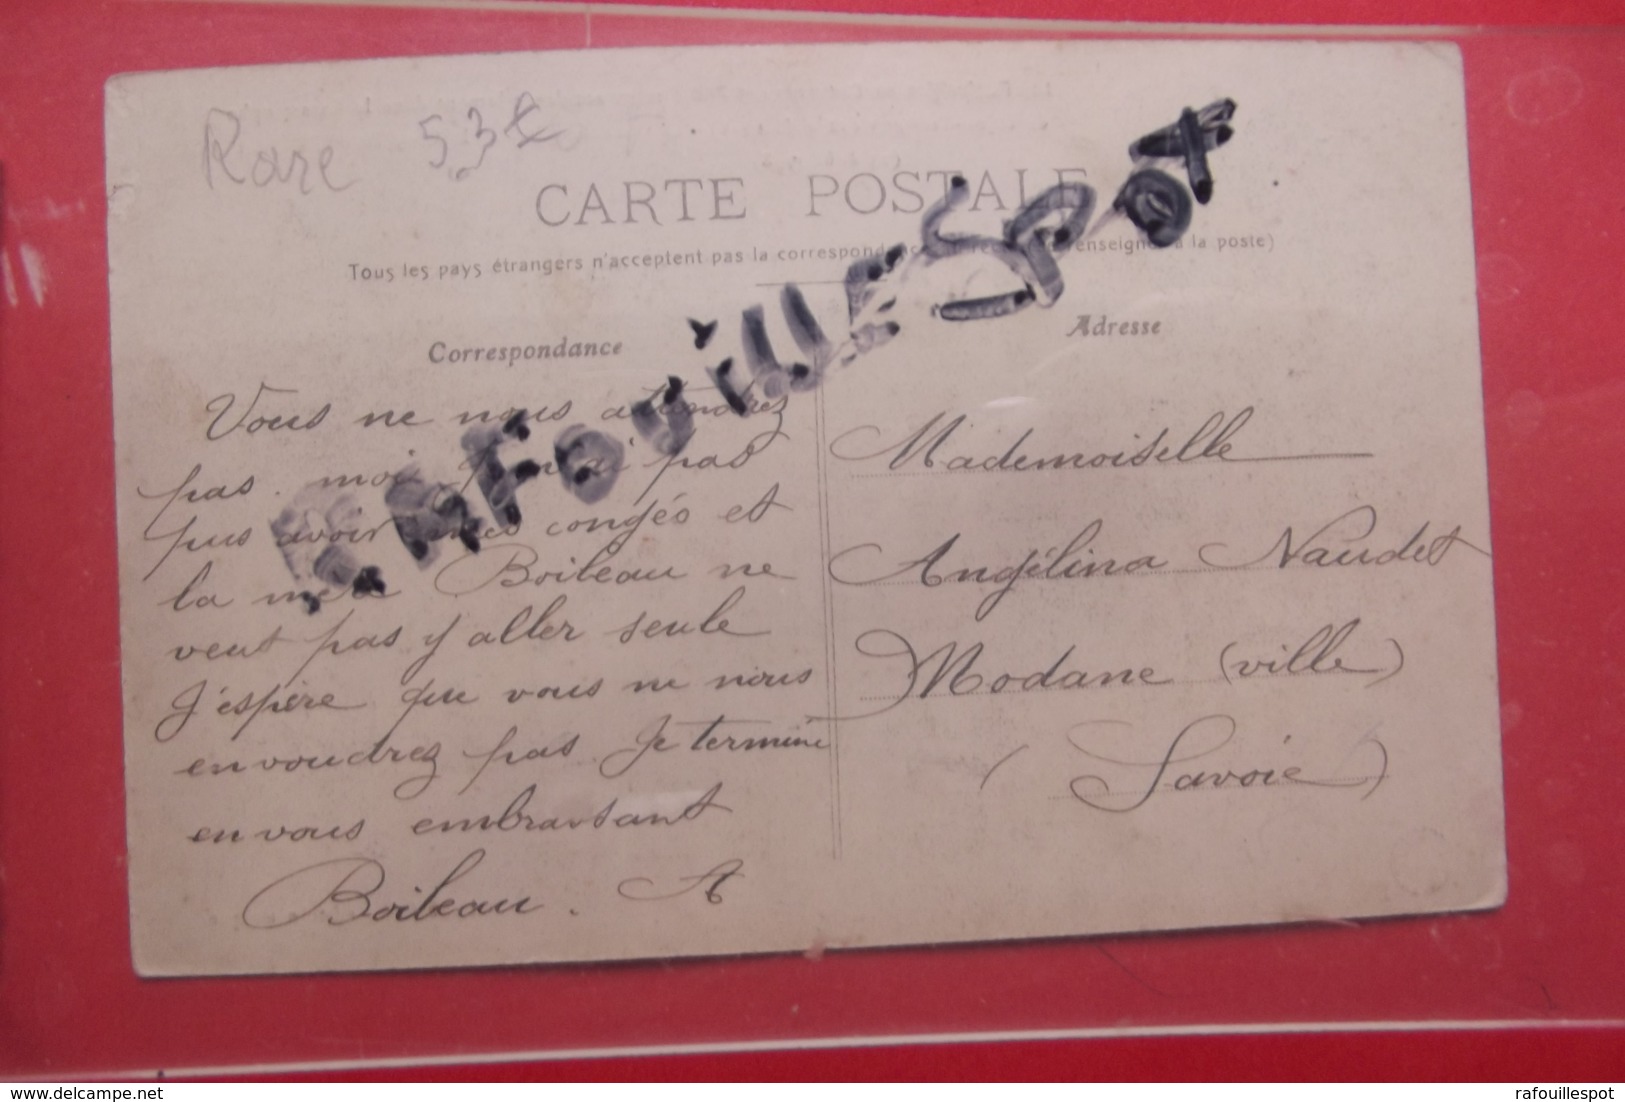 Rare 53€
CARTE POSTALE
Tous les pays étrangers n'acceptent pas la à la poste)
RAFouillESpot
Correspondance
Adresse
Vous ne nous attendrez
pas. moi pas
pus avoir mes congés et
la mère Boileau ne
veut pas y aller seule
J'espère que vous ne nous
en voudrez pas. Je termine
en vous embrassant
Boileau. A
Mademoiselle
Angélina Naudet
Modane (ville)
(Savoie)
delcampe.net
rafouillespot